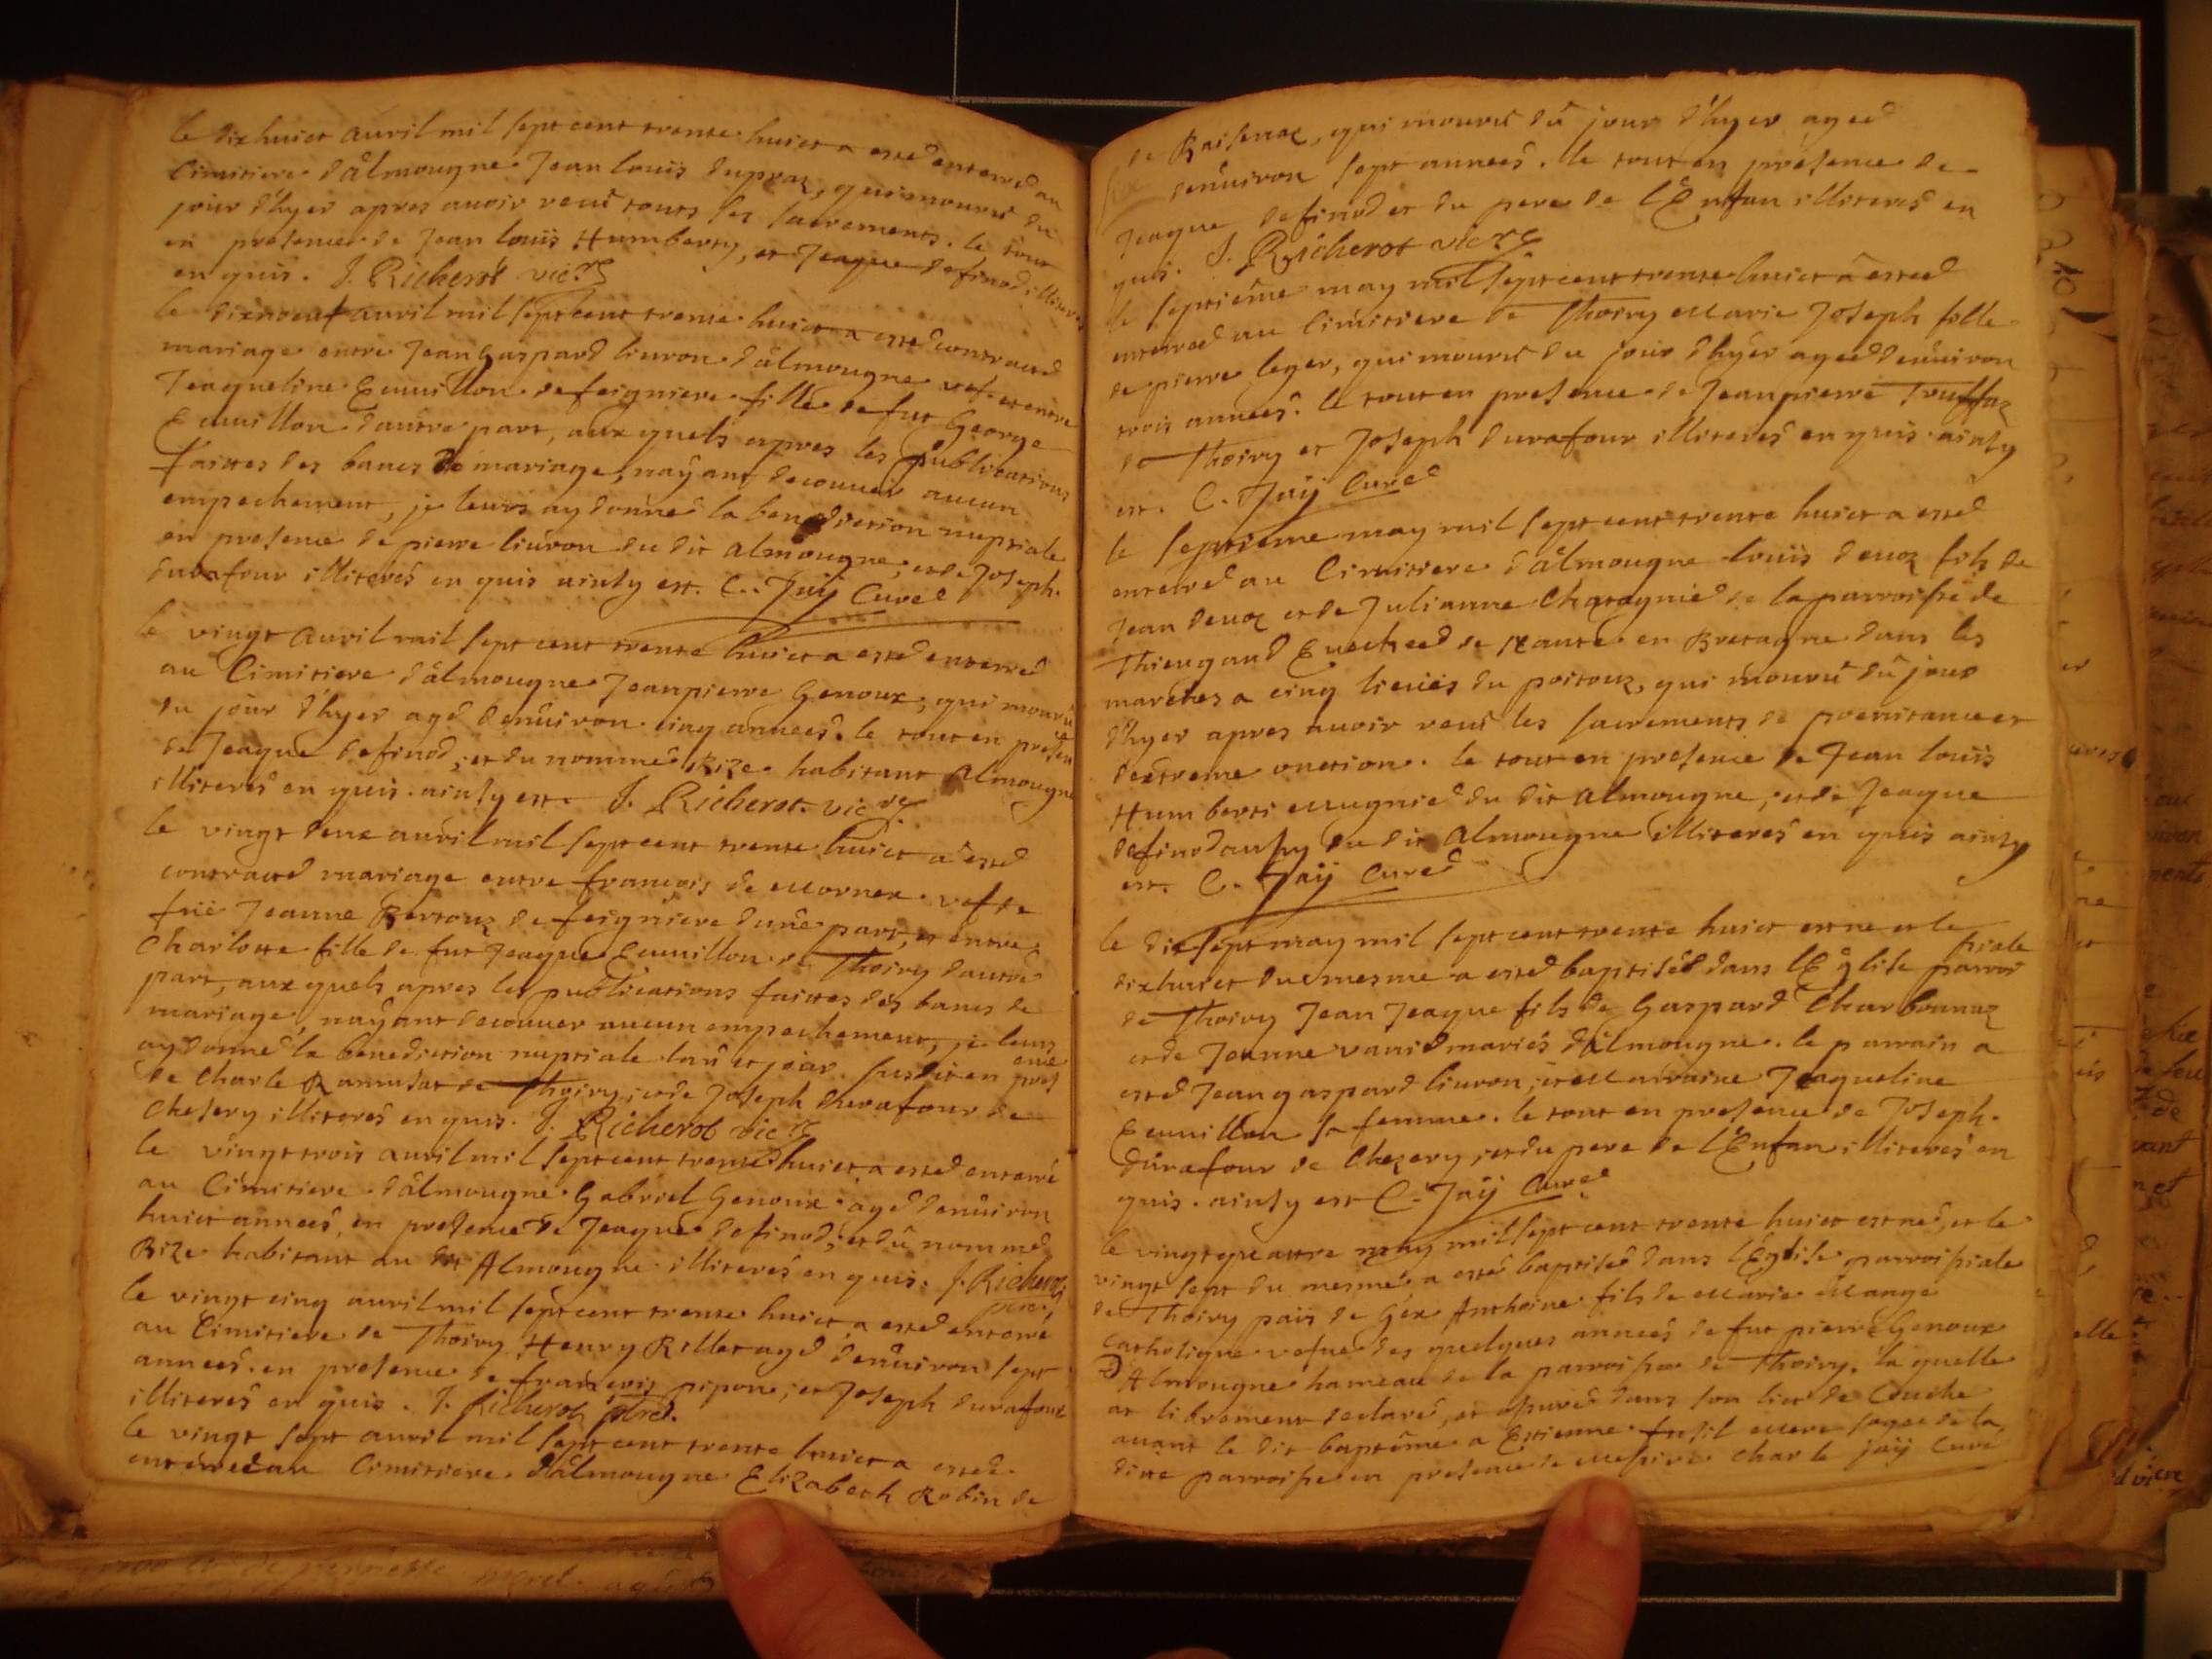 le dixhuict auril mil sept cent trente huict a esté enterré au
Cimitiere d'âlmougne Jean louïs dupraz, qui mourut du
jour d'hyer apres auoir reçut touts les sacrements. le tout
en presence de Jean louïs Humberty, et Jeaque definod illiterés
en quis. J. Richerot vicre
le dixneuf auril mil sept cent trente huict a esté contracté
mariage entre Jean gaspard liuron d'âlmougne vef. et entre
Jeaqueline Euuillon de feigniere fille de fut George
Euuillon d'autre part, aux quels apres les publications
faittes des bancs de mariage, nayant decouuér aucun
empechement, je leurs ay donné la benediction nuptiale
en presence de pierre liuron du dit almougne, et de Joseph.
durafour illiterés en quis ainsy est. C. Jaÿ Curé
le vingt auril mil sept cent trente huict a esté enterré
au Cimitiere d'âlmougne Jeanpierre Genoux, qui mourut
du jour d'hyer agé d'enuiron cinq annees. le tout en presen
de Jeaque definod, et du nommé Rize habitant almougne
illiterés en quis ainsy est. J. Richerot vicre
le vingt deux auril mil sept cent trente huict a esté
contracté mariage entre francois de mornex vef de
fuë Jeanne Bertouz de feigniere d'une part, et entre
Charlotte fille de fut Jeaque Euuillon de Thoiry d'autre
part, aux quels apres les publications faittes des bancs de
mariage, nayant decouuer aucun empechement, je leurs
ay donné la benediction nuptiale l'an et jour susdit en pres ence
de Charle Ramusat de Thoiry, et de Joseph durafour de
Chesery illiterés en quis. J. Richerot vicre
le vingt trois auril mil sept cent trente huict a esté enterré
au Cimitiere d'âlmougne Gabriel Genoux agé d'enuiron
huict annees, en presence de Jeaque definod, et du nommé
Rize habitant au dit Almougne illiterés en quis. J. Richerot
le vingt cinq auril mil sept cent trente huict a esté enterré
au Cimitiere de Thoiry Henry Rillet agé d'enuiron sept
annees. en presence de francois pipon, et Joseph durafour
illiterés en quis. J. Richerot
le vingt sept auril mil sept cent trente huict a esté
enterré au Cimitiere d'âlmougne Elizabeth Robin de
de qui mourut du jour d'hyer agée
d'enuiron sept annees. le tout en presence de
Jeaque definod et du pere de l'Enfan illiterés en
quis. J. Richerot vicre
le septieme may mil sept cent trente huict a esteé
enterreé au Cimitiere de Thoiry Marie Joseph fille
de pierre leger, qui mourut du jour d'hyer ageé d'enuiron
trois annees. le tout en presence de Jeanpierre Truffaz
de Thoiry et Joseph durafour illiterés en quis ainsy
est. C. Jaÿ Curé
le septieme may mil sept cent trente huict a esté
enterré au Cimitiere d'âlmougne louïs deuoz fils de
Jean deuoz et de Julianne Chatagnié de la parroisse de
Thieugand Euecheé de Nante en Bretagne dans les
marches a cinq lieuës du poitouz, qui mourut du jour
d'hyer apres auoir reçut les sacrements de poenitance et
d'extreme onction. le tout en presence de Jean louïs
Humberti Mugnié du dit almougne, et de Jeaque
definod aussy du dit almougne illiterés en quis ainsy
est. C. Jaÿ Curé
le dixsept may mil sept cent trente huict est né et le
dixhuict du mesme a esté baptisé dans l'Église parroi ssiale
de Thoiry Jean Jeaque fils de Gaspard Charbonnaz
et de Jeanne mariés d'âlmougne. le parrain a
esté Jean gaspard liuron, et Marraine Jeaqueline
Euuillon sa femme. le tout en presence de Joseph.
durafour de Chezery, et du pere de l'Enfan illiterés en
quis. ainsy est C. Jaÿ Curé
le vingtquattre may mil sept cent trente huict est né, et le
vingt sept du mesme a esté baptisé dans l'Église parroissiale
de Thoiry païs de Géx Anthoine fils de Marie Mange
Catholique vefue des quelques annees de fut pierre Genoux
d'Almougne hameau de la parroisse de Thoiry. la quelle
at librement declaré, et assuré dans son lict de Couche
auant le dit baptême a Estienne fusil mere sagee de la
ditte parroisse en presence de Messire Charle jaÿ Curé